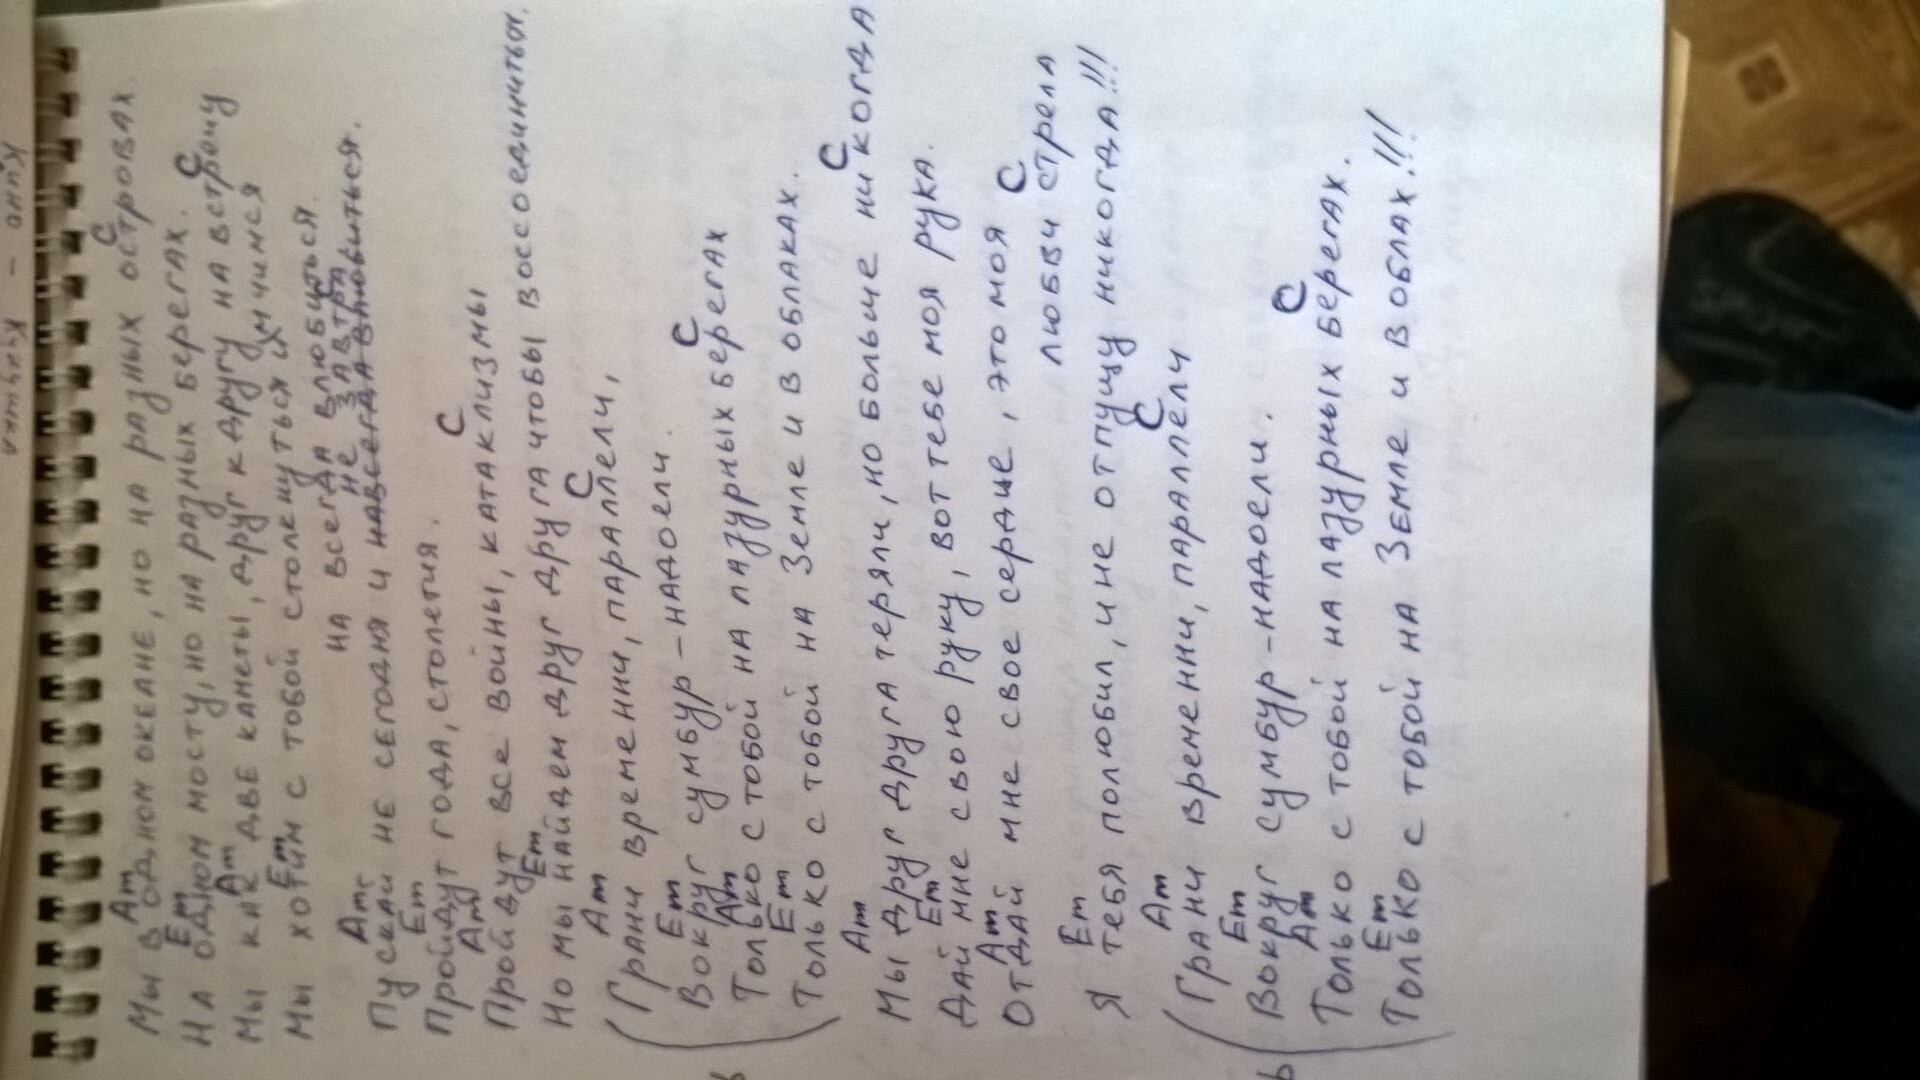 Кино - Кукушка
Am C
Мы в одном океане, но на разных островах.
Em
На одном мосту, но на разных берегах.
Am C
Мы как две каметы, друг к другу на встречу
мчимся
Em
Мы хотим с тобой столкнуться и
на всегда влюбиться.
не завтра
Am
Пускай не сегодня и навсегда влюбиться.
Em
Пройдут года, столетия.
Am C
Пройдут все войны, катаклизмы
Em
Но мы найдем друг друга чтобы воссоединиться.
Am C
Грани времени, параллели,
Em
Вокруг сумбур - надоели.
Am C
Только с тобой на лазурных берегах
Em
Только с тобой на Земле и в облаках.
Am C
Мы друг друга теряли, но больше никогда
Em
Дай мне свою руку, вот тебе моя рука.
Am C
Отдай мне свое сердце, это моя
любви стрела
Em
Я тебя полюбил, и не отпущу никогда!!!
Am C
Грани времени, параллели
Em
Вокруг сумбур - надоели.
Am C
Только с тобой на лазурных берегах.
Em
Только с тобой на Земле и в облах.!!!